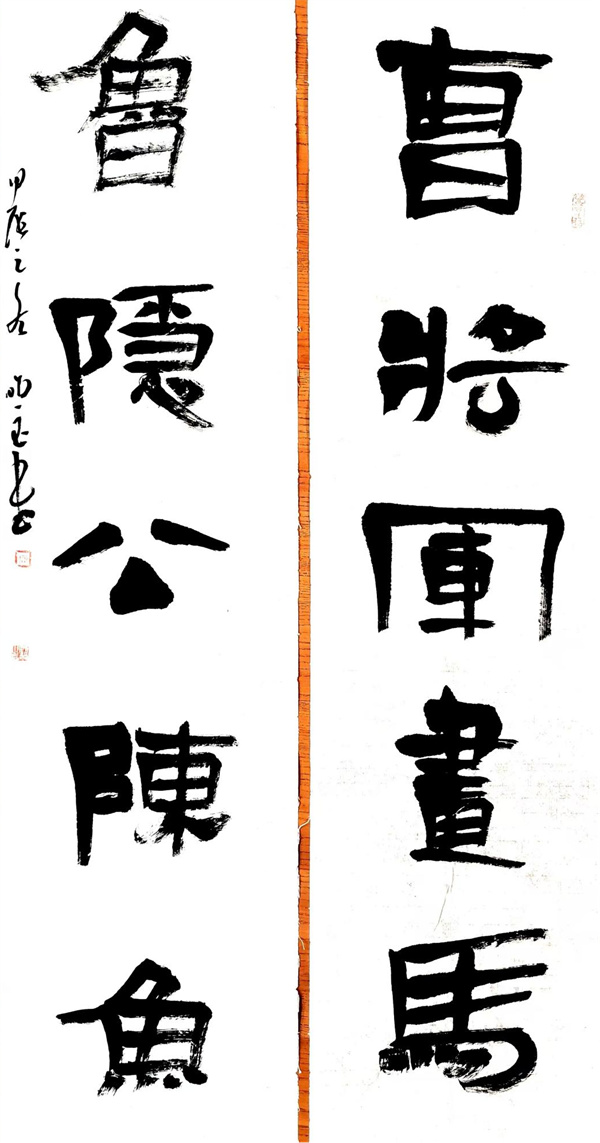 曹將軍畫馬
魯隱公陳魚
甲辰之冬